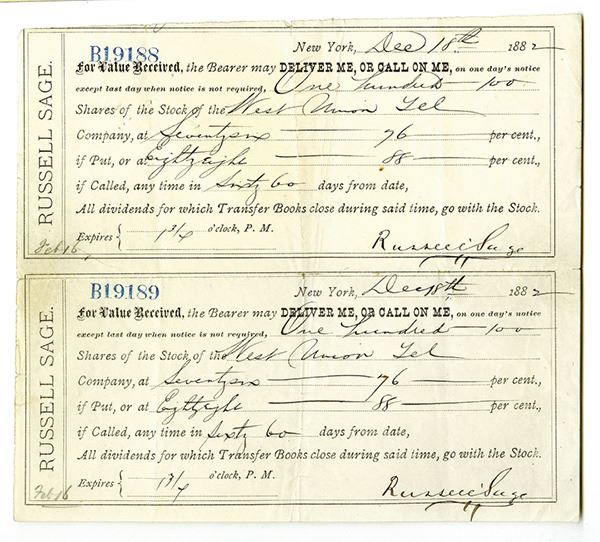 RUSSELL SAGE.
B19188
New York, Dec 18th 1882
For Value Received, the Bearer may DELIVER ME, OR CALL ON ME, on one day's notice
except last day when notice is not required, One hundred 100
Shares of the Stock of the West Union Tel
Company, at Seventysix 76 per cent.,
if Put, or at Eightyeight 88 per cent.,
if Called, any time in Sixty 60 days from date,
All dividends for which Transfer Books close during said time, go with the Stock.
Expires { 1 3/4 o'clock, P. M.
Feb 16
Russell Sage
RUSSELL SAGE.
B19189
New York, Dec 18th 1882
For Value Received, the Bearer may DELIVER ME, OR CALL ON ME, on one day's notice
except last day when notice is not required, One hundred 100
Shares of the Stock of the West Union Tel
Company, at Seventysix 76 per cent.,
if Put, or at Eightyeight 88 per cent.,
if Called, any time in Sixty 60 days from date,
All dividends for which Transfer Books close during said time, go with the Stock.
Expires { 1 3/4 o'clock, P. M.
Feb 16
Russell Sage